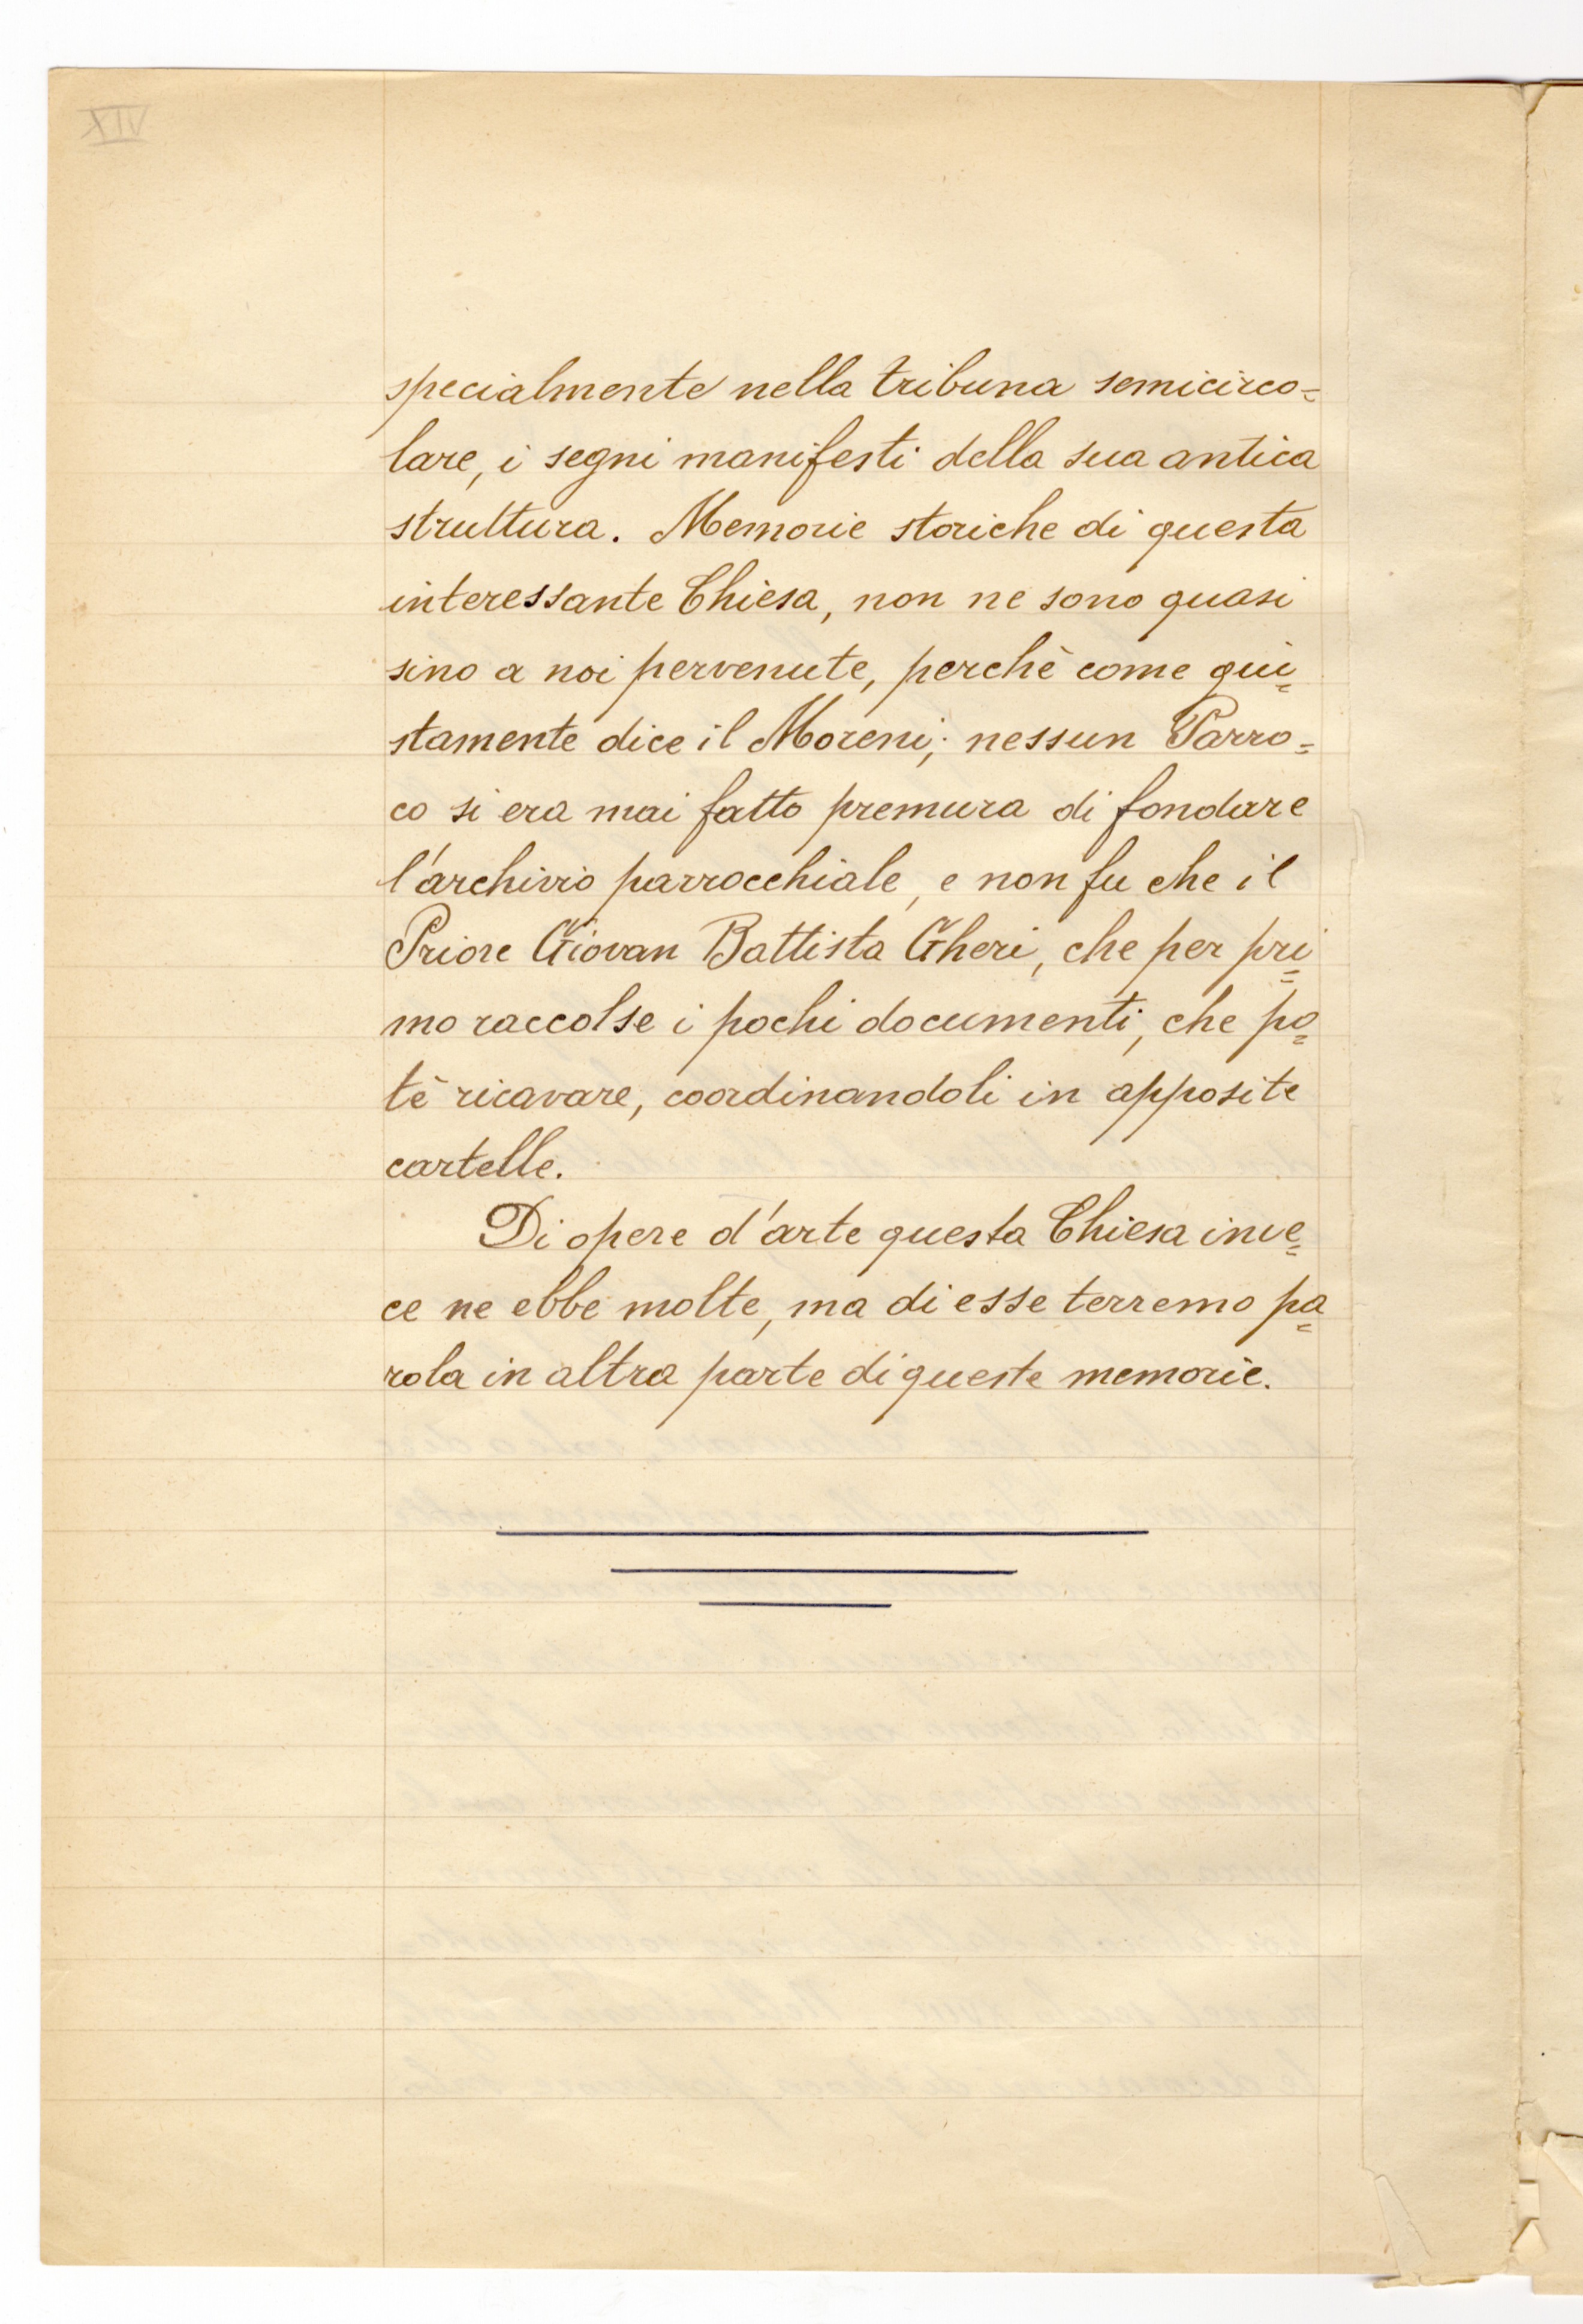 XIV
specialmente nella tribuna semicirco=
lare, i segni manifesti della sua antica
struttura. Memorie storiche di questa
interessante Chiesa, non ne sono quasi
sino a noi pervenute, perchè come giu=
stamente dice il Moreni; nessun Parro=
co si era mai fatto premura di fondare
l'archivio parrocchiale, e non fu che il
Priore Giovan Battista Gheri, che per pri=
mo raccolse i pochi documenti, che po=
tè ricavare, coordinandoli in apposite
cartelle.
Di opere d'arte questa Chiesa inve=
ce ne ebbe molte, ma di esse terremo pa=
rola in altra parte di queste memorie.